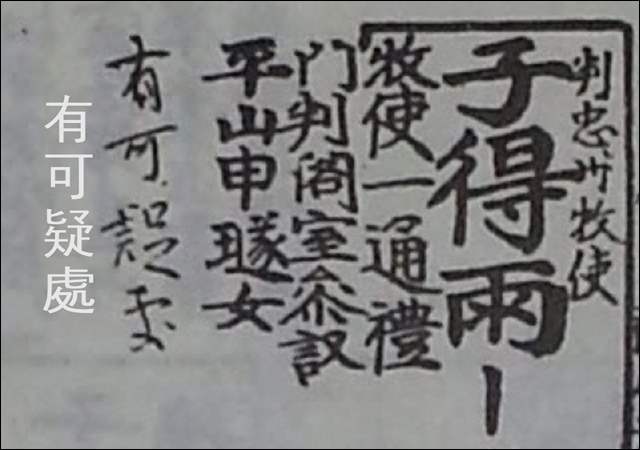 判忠州牧使
子得雨丨
牧使一通禮
門判閤室叅議
平山申璲女
有可疑處
有可疑處